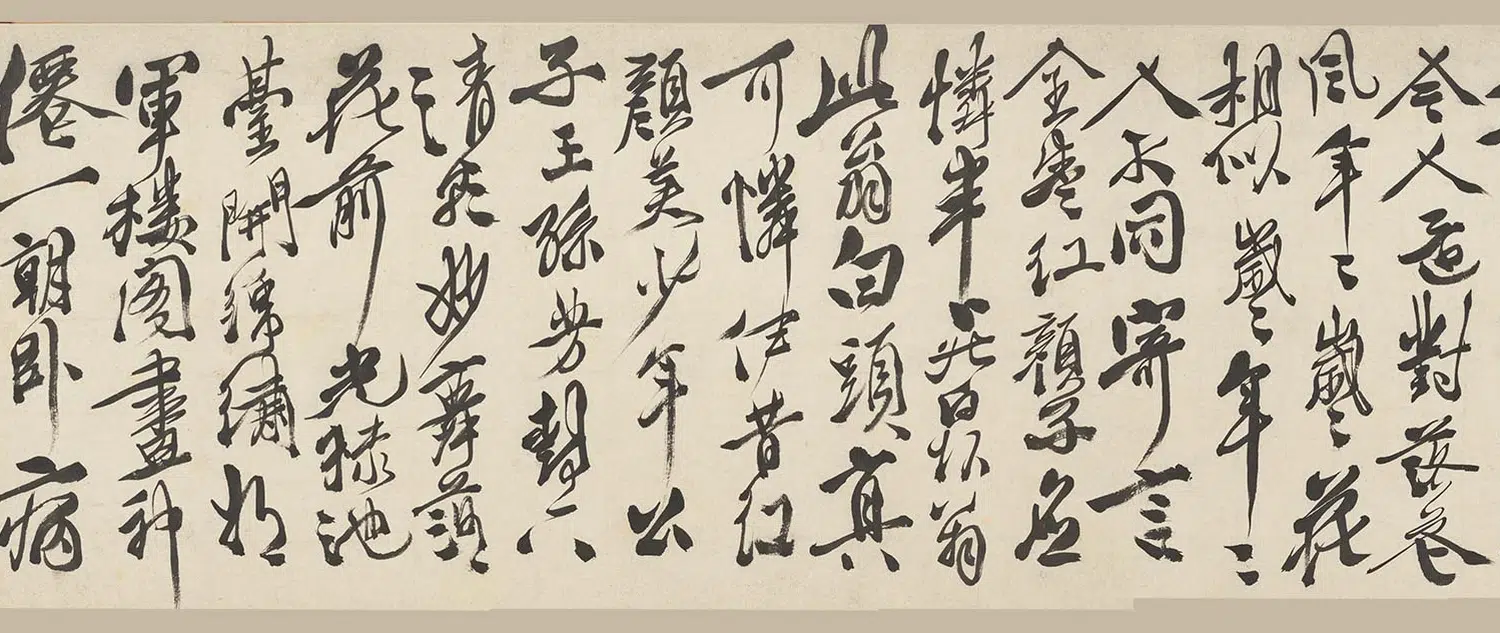 今人還對落花
風年〻歲〻花
相似歲〻年〻
人不同寄言
全盛紅顏子應
憐半死白頭翁
此翁白頭真
可憐伊昔紅
顏美少年公
子王孫芳樹下
清歌妙舞落
花前光祿池
臺開錦繡將
軍樓閣畫神
僊一朝臥病